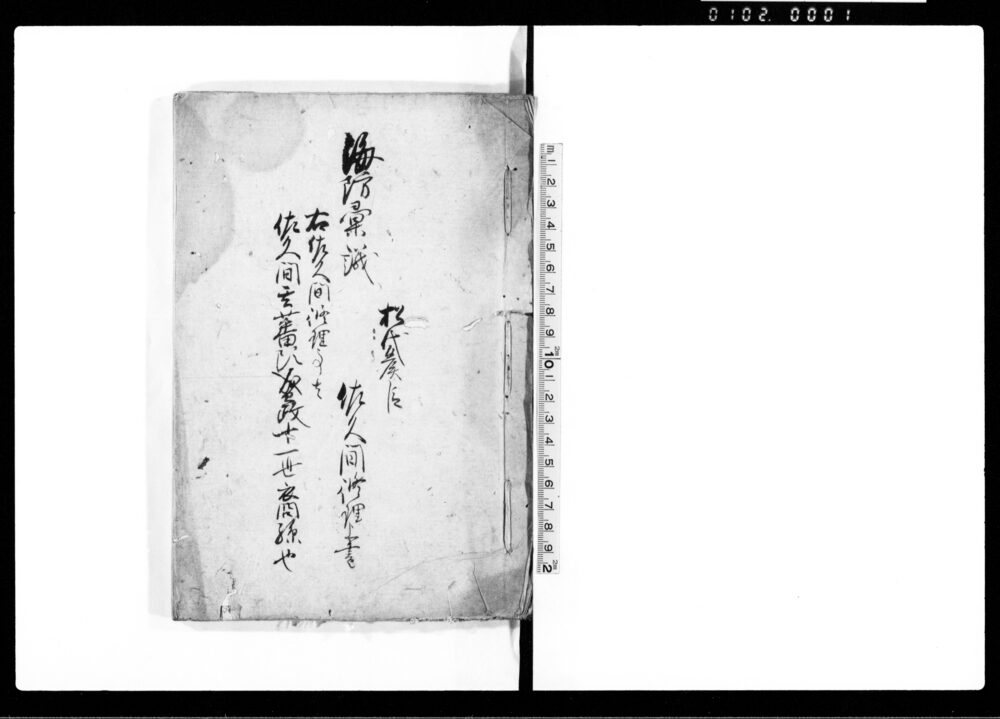 0102. 0001
松代藩臣
海防彙議 佐久間修理書
右佐久間修理事は
佐久間玄蕃盛政十一世裔孫也
m 1 2 3 4 5 6 7 8 9 10 1 2 3 4 5 6 7 8 9 2